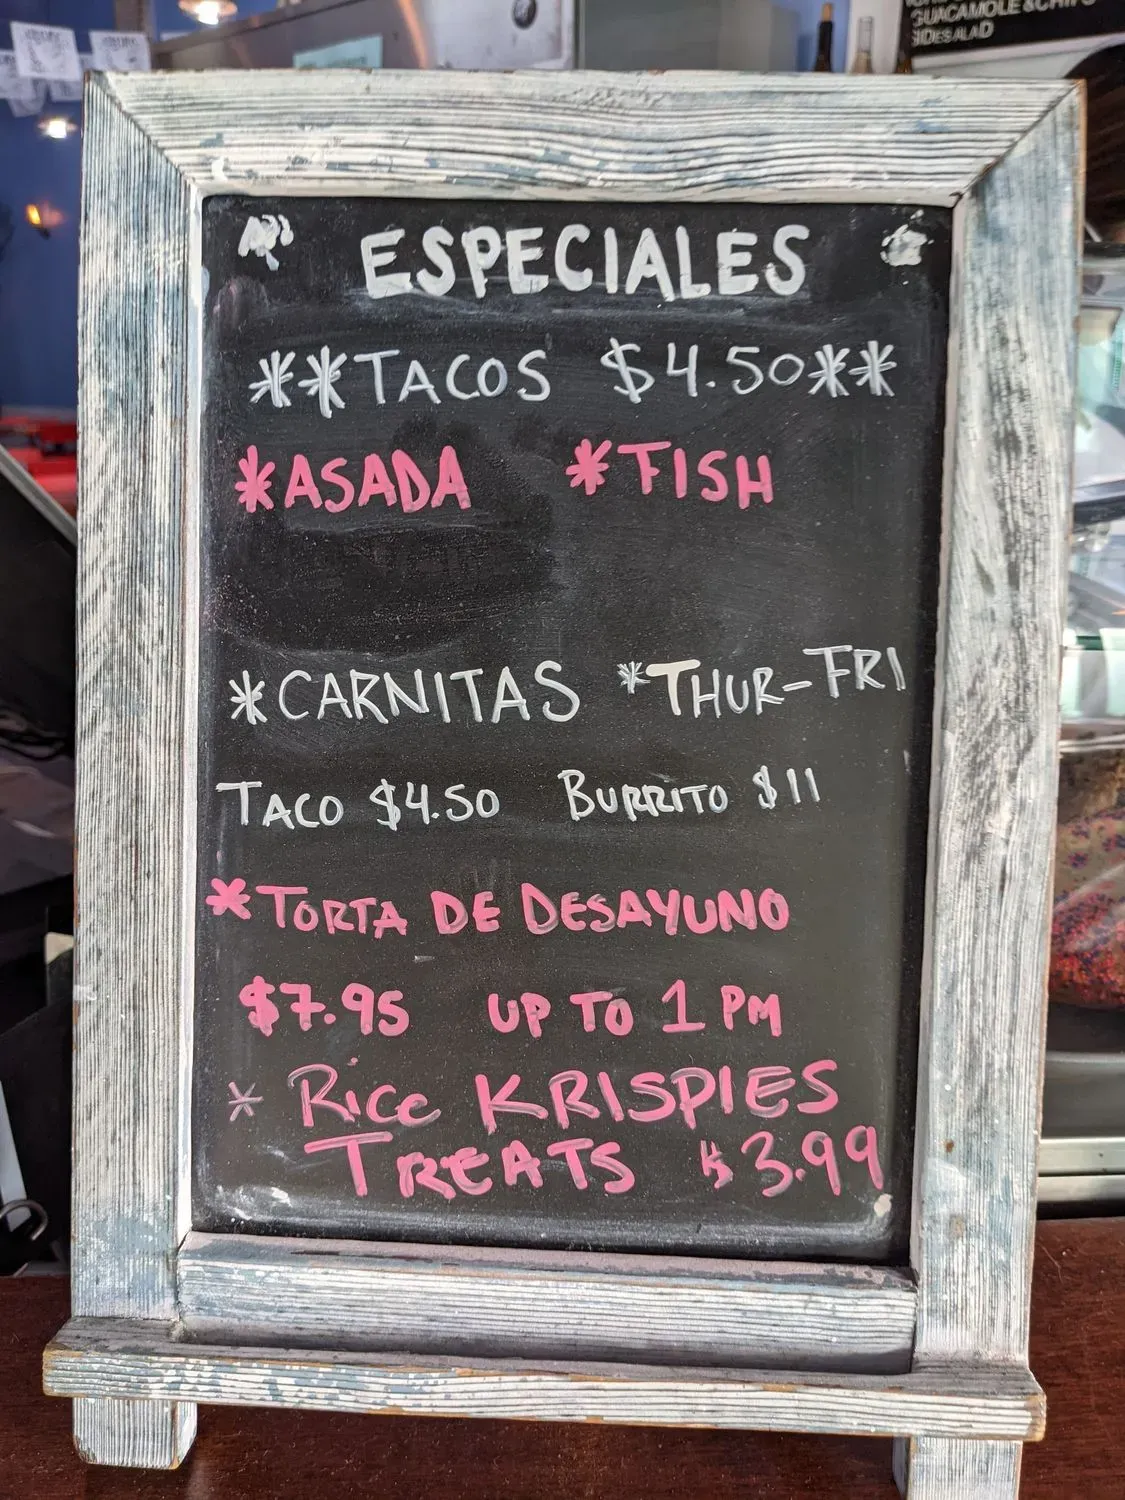 GUACAMOLE & CHIPS
SIDE SALAD
ESPECIALES
**TACOS $4.50**
*ASADA *FISH
*CARNITAS *THUR-FRI
TACO $4.50 BURRITO $11
*TORTA DE DESAYUNO
$7.95 UP TO 1 PM
* Rice KRISPIES
TREATS $3.99